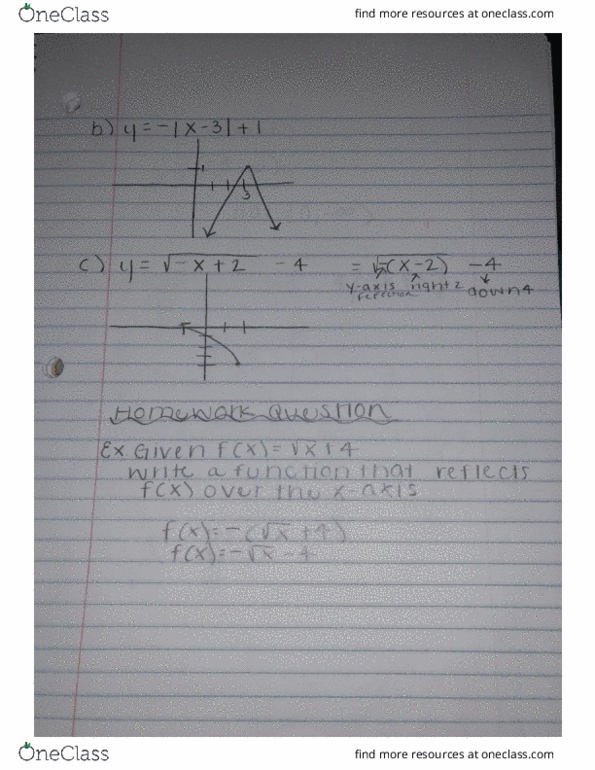 OneClass find more resources at oneclass.com
b) y = -|x-3| + 1
3
c) y = √-x+2 -4 = √-(x-2) -4
y-axis right 2 down 4
reflection
Homework Question
Ex. Given f(x) = √x + 4
write a function that reflects
f(x) over the x-axis
f(x) = -(√x + 4)
f(x) = -√x - 4
OneClass find more resources at oneclass.com